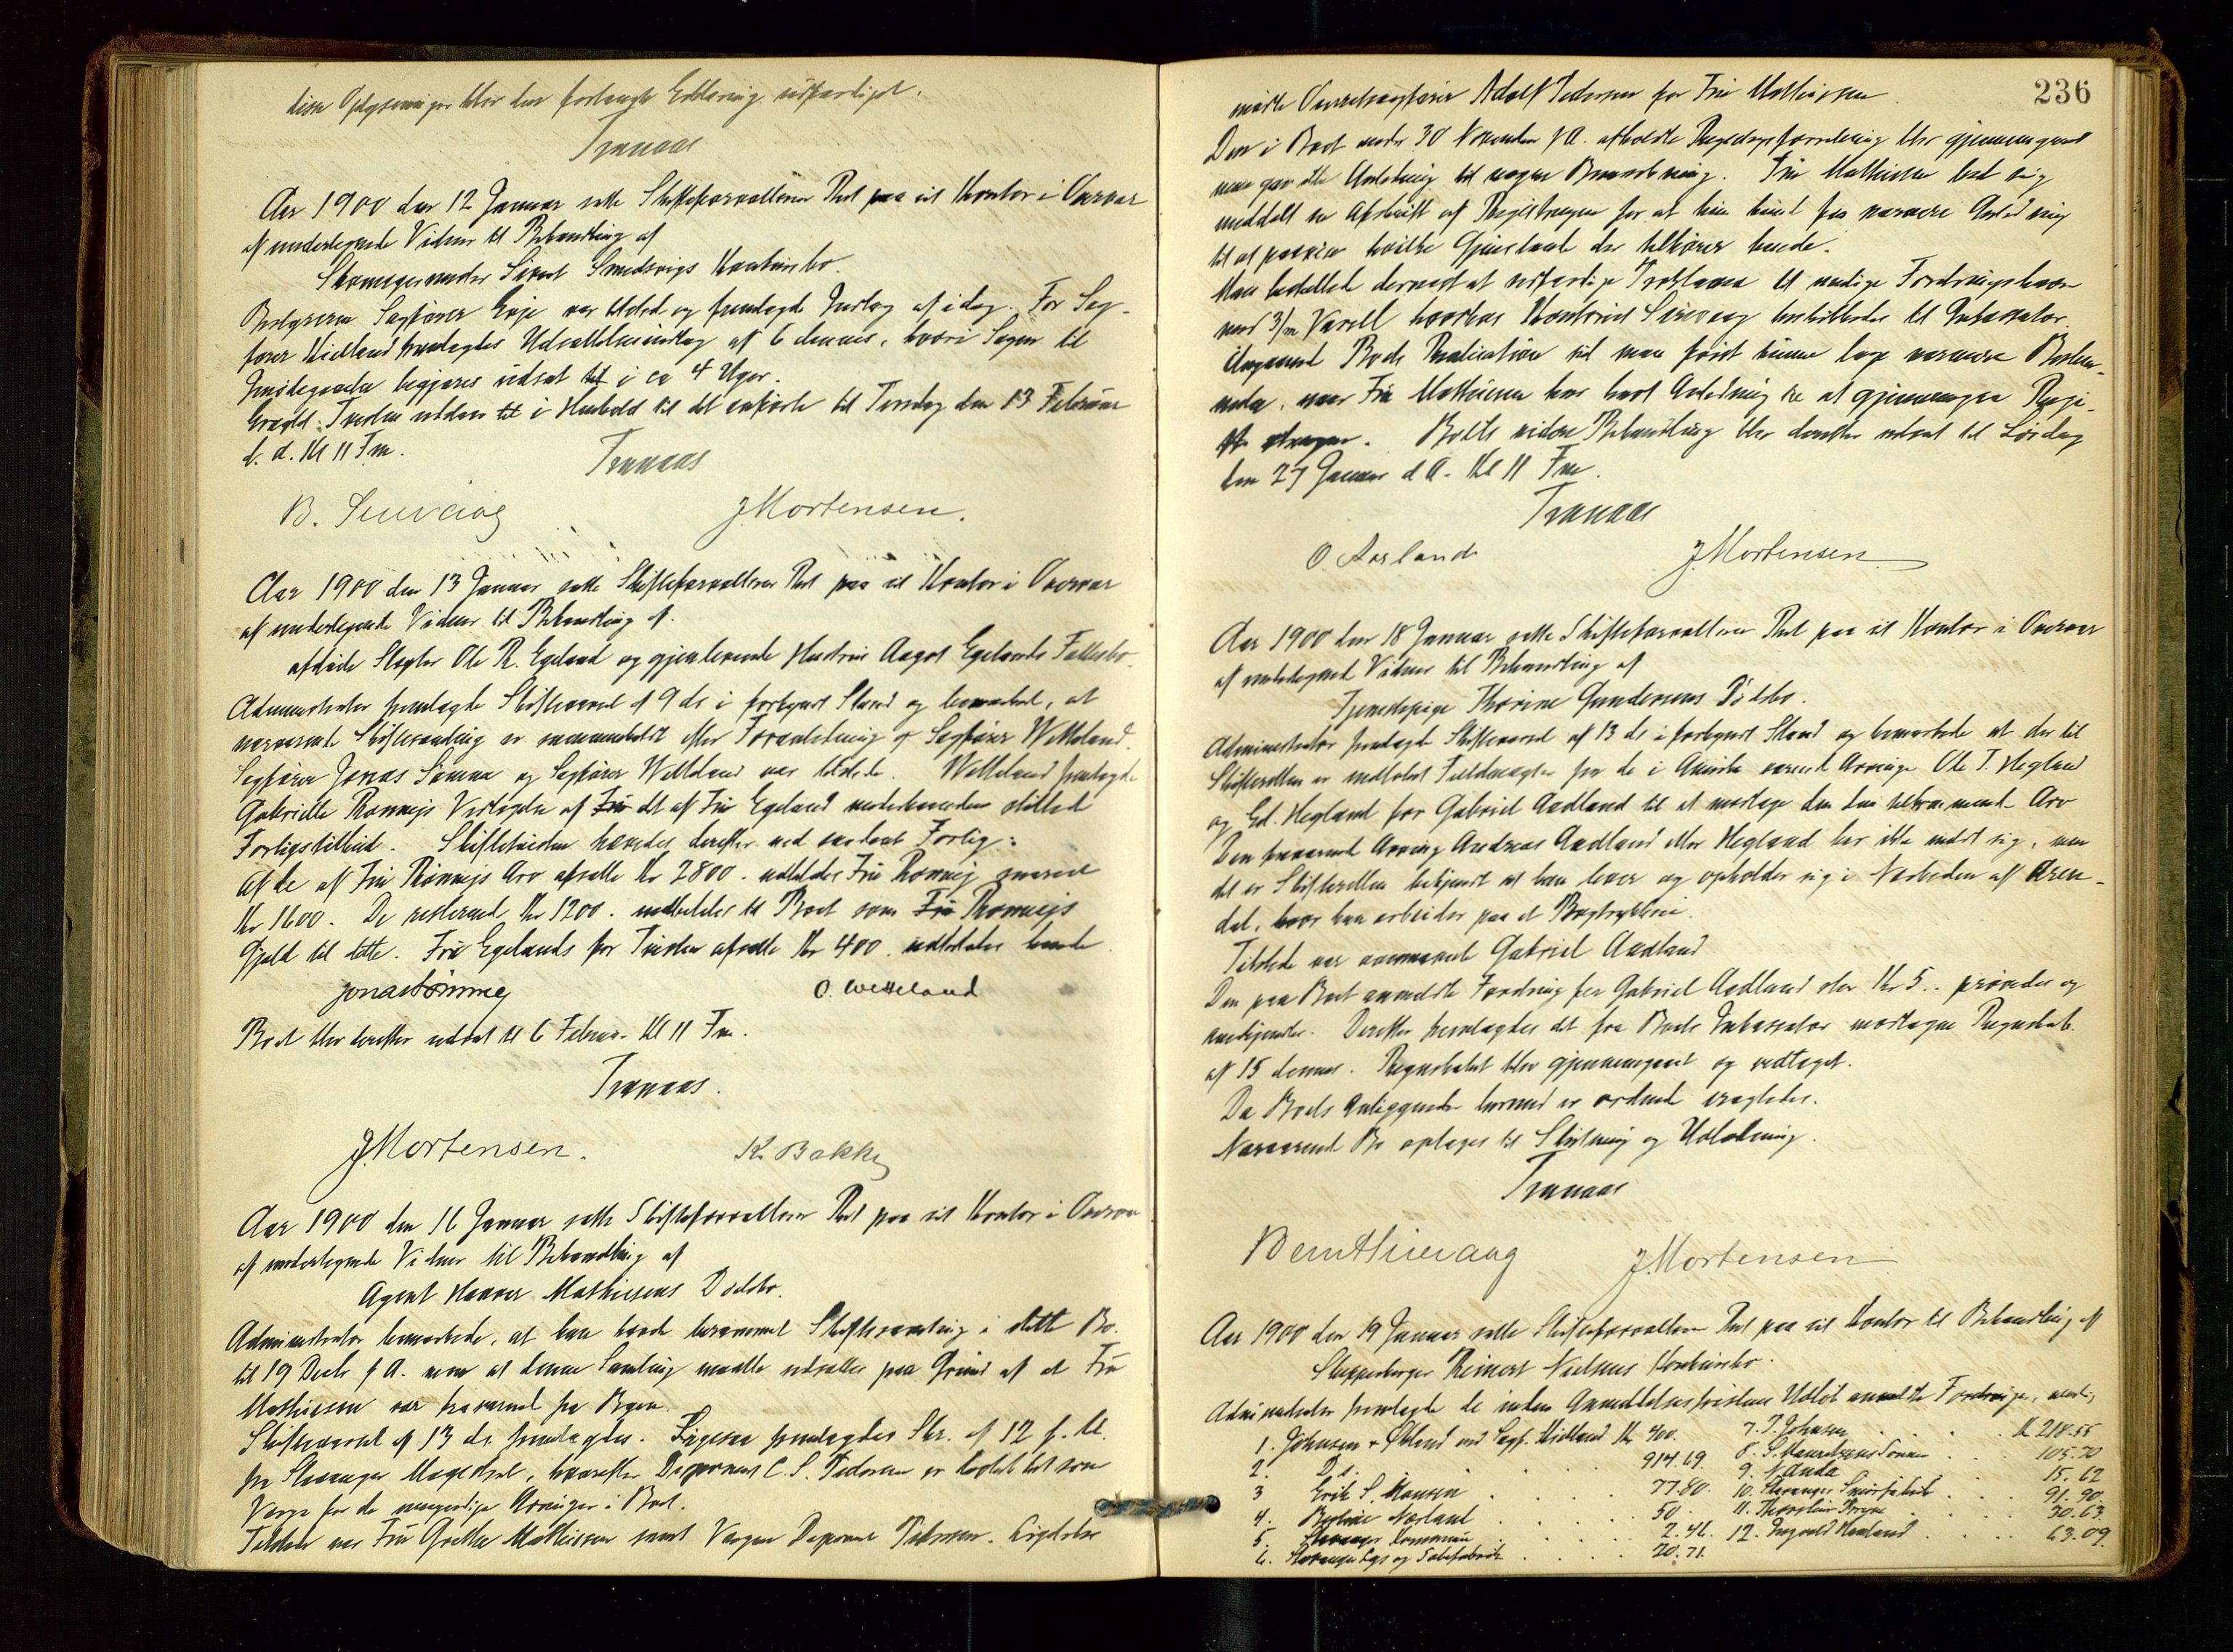 disse Oplysninger blev den forlangte Erklæring udfærdiget.
Tranaas
Aar 1900 den 12 Januar satte Skifteforvalteren Ret paa sit Kontor i Overvær
af undertegnede Vidner til Behandling af
Skomagermester Sivert Smedsvigs Konkursbo.
Bestyreren Sagfører Eeje var tilsted og fremlagde Indlæg af idag. For Sag-
fører Kielland fremlagdes Udsættelsesindlæg af 6 dennes, hvori Sagen til
Imødegaaelse begjæres udsat i ca 4 Uger.
Eragtet: Tvisten udsættes i Henhold til det anførte til Tirsdag den 13 Februar
d. A. Kl 11 Fm.
Tranaas
B. Sirevaag JMortensen.
Aar 1900 den 13 Januar satte Skifteforvalteren Ret paa sit Kontor i Overvær
af undertegnede Vidner til Behandling af
afdøde Slagter Ole R. Egeland og gjenlevende Hustru Aagot Egelands Fællesbo.
Administrator fremlagde Skiftevarsel af 9 ds i forkyndt Stand og bemærked, at
nærværende Skiftesamling er sammenkaldt efter Foranledning af Sagfører Wetteland.
Sagfører Jonas Sømme og Sagfører Wetteland var tilstede. Wetteland fremlagde
Gabrielle Rønnejs Vedtagelse af det af Fru Egeland nedenanden stillede
Forligstilbud. Skiftetvisten hævedes derefter ved saadant Forlig:
Af de af Fru Rønnejs Arv afsatte Kr 2800. udbetales Fru Rønnej snarest
Kr 1600. De resterende Kr 1200. indbetales til Boet som Fru Rønnejs
Gjæld til dette. Fru Egelands for Tvisten afsatte Kr 400. udbetales hende.
Jonas Sømme O. Wetteland
Boet blev derefter udsat til 6 Februar Kl 11 Fm.
Tranaas.
JMortensen. K. Bakke
Aar 1900 den 16 Januar satte Skifteforvalteren Ret paa sit Kontor i Overvær
af undertegnede Vidner til Behandling af
Agent Hanver Mathiesens Dødsbo.
Administrator bemærkede, at han havde berammet Skiftesamling i dette Bo
til 19 Decb f A. men at denne Samling maatte udsættes paa Grund af at Fru
Mathiesen var fraværende fra Byen.
Skiftevarsel af 13 ds. fremlagdes. Ligesaa fremlagdes Skr. af 12 f. M.
fra Stavanger Magistrat, hvorefter Disponent C. S. Pedersen er beskikket som
Værge for de umyndige Arvinger i Boet.
Tilstede var Fru Grethe Mathiesen samt Værgen Disponent Pedersen. Ligeledes
236
mødte Overretssagfører Adolf Pedersen for Fru Mathiesen.
Den i Boet under 30 November f A. afholdte Registreringsforretning blev gjennemgaaet
men gav ikke Anledning til nogen Bemærkning. Fru Mathiesen bad sig
meddelt en Afskrift af Registreringen for at hun kunde faa nærmere Anledning
til at paavise hvilke Gjenstande der tilhører hende.
Man besluttede dernæst at udfærdige Proklama til mulige Fordringshavere
med 3/m Varsel hvorhos Kontorist Sirevaag beskikkedes til Inkassator.
Angaaende Boets Realisation vil man først kunne tage nærmere Bestem-
melse, naar Fru Mathiesen har havt Anledning til at gjennemgaa Regi-
streringen. Boets videre Behandling blev derefter udsat til Lørdag
den 27 Januar d A. Kl 11 Fm.
Tranaas
O Aarland JMortensen
Aar 1900 den 18 Januar satte Skifteforvalteren Ret paa sit Kontor i Overvær
af undertegnede Vidner til Behandling af
Tjenestepige Thorine Gundersens Dødsbo.
Administrator fremlagde Skiftevarsel af 13 ds i forkyndt Stand og bemærkede at der til
Skifteretten er indløbet Fuldmagter fra de i Amerika værende Arvinge Ole T. Hegland
og Ed. Hegland for Gabriel Aadland til at modtage den dem tilkommende Arv
Den fraværende Arving Andreas Aadland eller Hegland har ikke meldt sig, men
det er Skifteretten bekjendt at han lever og opholder sig i Nærheden af Aren-
dal, hvor han arbeider paa et Bogtrykkeri.
Tilstede var ovennævnte Gabriel Aadland
Den paa Boet anmeldte Fordring fra Gabriel Aadland stor Kr 5.. prøvedes og
anerkjendtes. Derefter fremlagdes det fra Boets Inkassator modtagne Regnskab
af 15 dennes. Regnskabet blev gjennemgaaet og vedtaget.
Da Boets Anliggender hermed er ordnede eragtedes.
Nærværende Bo optages til Slutning og Udlodning.
Tranaas
Bernt Sirevaag JMortensen
Aar 1900 den 19 Januar satte Skifteforvalteren Ret paa sit Kontor til Behandling af
Reinert Nielsens Konkursbo.
Administrator fremlagde de inden Anmeldelsesfristens Udløb anmeldte Fordringer, nemlig
1. Johnsen & ved Sagf. Kielland Kr 400. 7. J. Johnsen Kr 218.55
2. Ds. 914.69. 8. S. 105.70
3 Erik S. Hansen 77.80. 9. Anda 15.62
4. Aarland 50. 10. Stavanger 91.90
5. Stavanger Kommune 2.46. 11. Thorstein Bryne 30.63
6. Stavanger Lys og Sæbefabrik 20.71. 12. Ingvald Haaland 63.09.